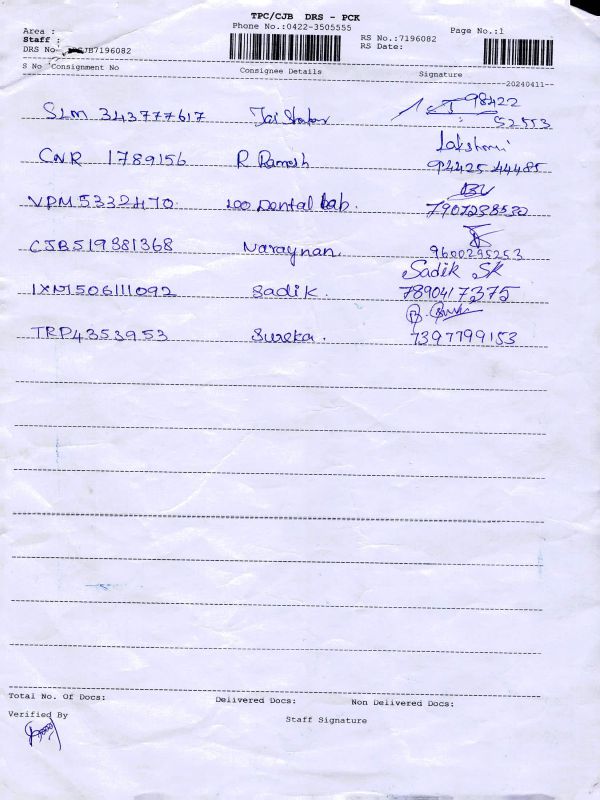 TPC/CJB DRS - PCK
Phone No.:0422-3505555
Area :
Staff :
DRS No CJB7196082
RS No.:7196082
RS Date:
Page No.:1
S No Consignment No Consignee Details Signature
--20240411--
SLM 343777617 98422
52553
CNR 1789156 R Ramesh Lakshmi
94425 44485
VPM 5332470 100 Dental Lab. 7907238530
CJB519381368 Naraynan. 9600295253
IXM506111092 Sadik. Sadik SK
7890417375
TRP4353953 Sureka. 7397799153
Total No. Of Docs: Delivered Docs: Non Delivered Docs:
Verified By Staff Signature